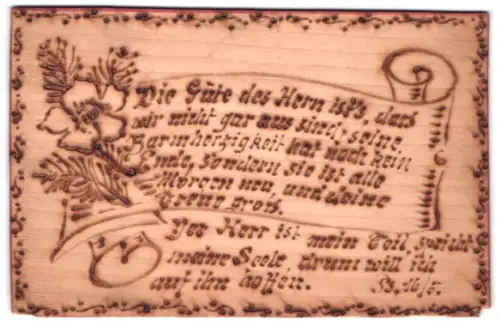 Die Güte des Herrn ist's, daß
wir nicht gar aus sind, seine
Barmherzigkeit hat noch kein
Ende, sondern sie ist alle
Morgen neu, und deine
Treue groß.
Der Herr ist mein Teil, spricht
meine Seele drum will ich
auf ihn hoffen.